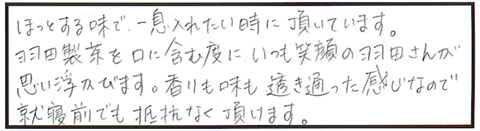 ほっとする味で、一息入れたい時に頂いています。
羽田製茶を口に含む度にいつも笑顔の羽田さんが
思い浮かびます。香りも味も透き通った感じなので
就寝前でも抵抗なく頂けます。